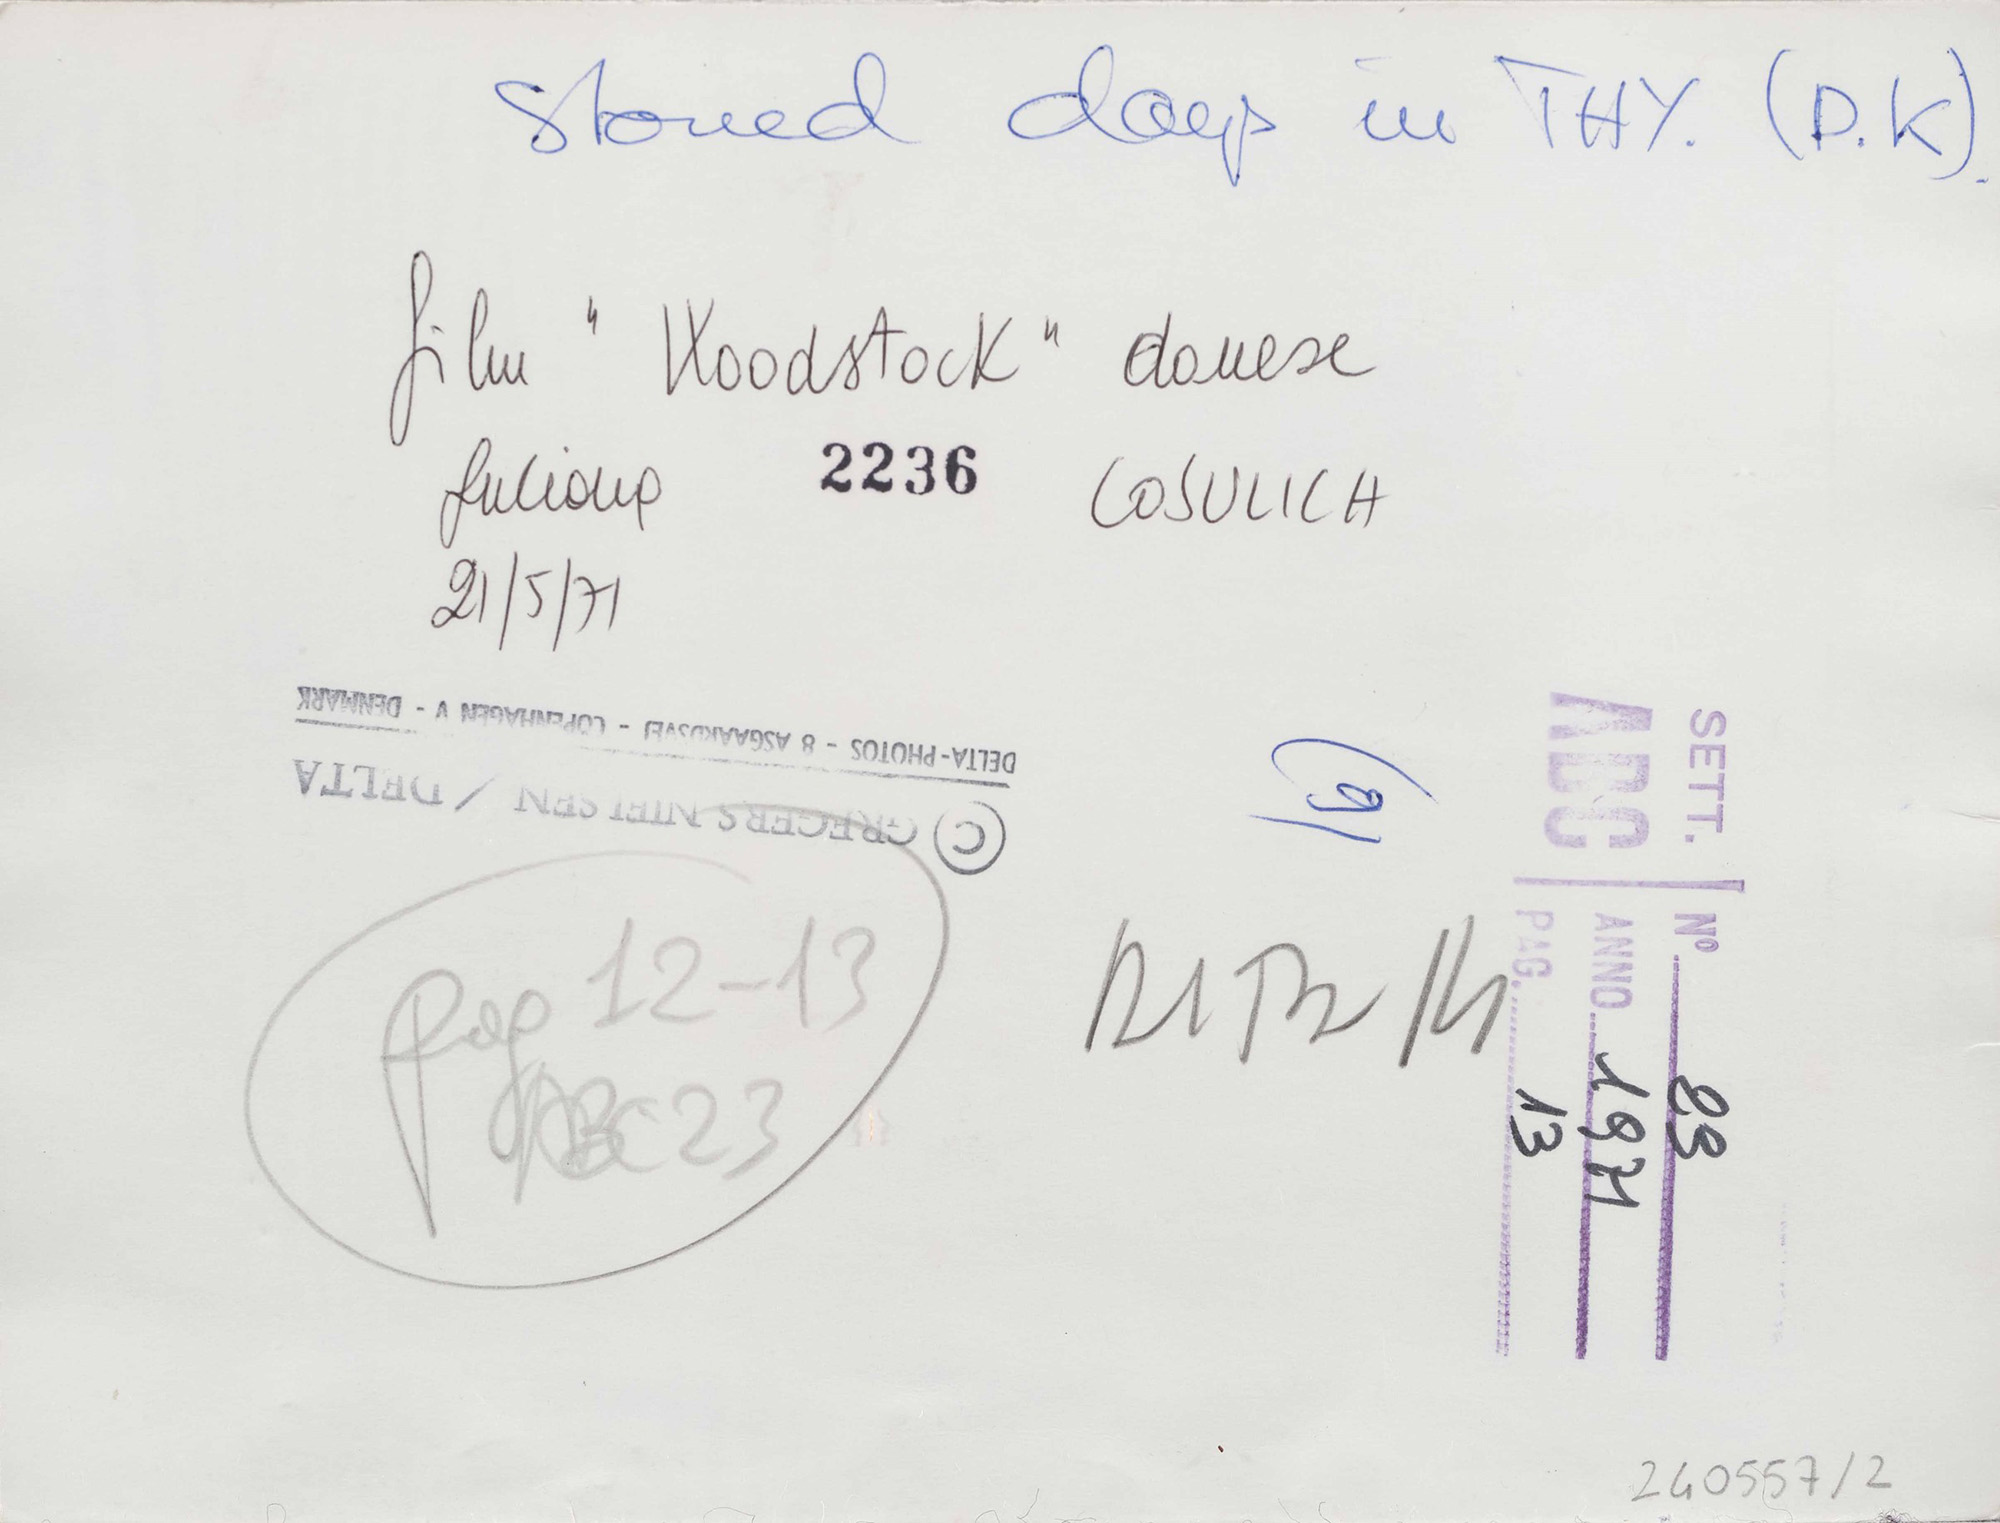 Stoned days in THY. (D.K).
film "Woodstock" danese
Juliana 2236 COSULICH
21/5/71
DELTA-PHOTOS - 8 ASGAARDSVEJ - COPENHAGEN V - DENMARK
© GREGERS NIELSEN / DELTA
pag 12-13
ABC 23
SETT. ABC
Nº 23
ANNO 1971
PAG. 13
240557/2